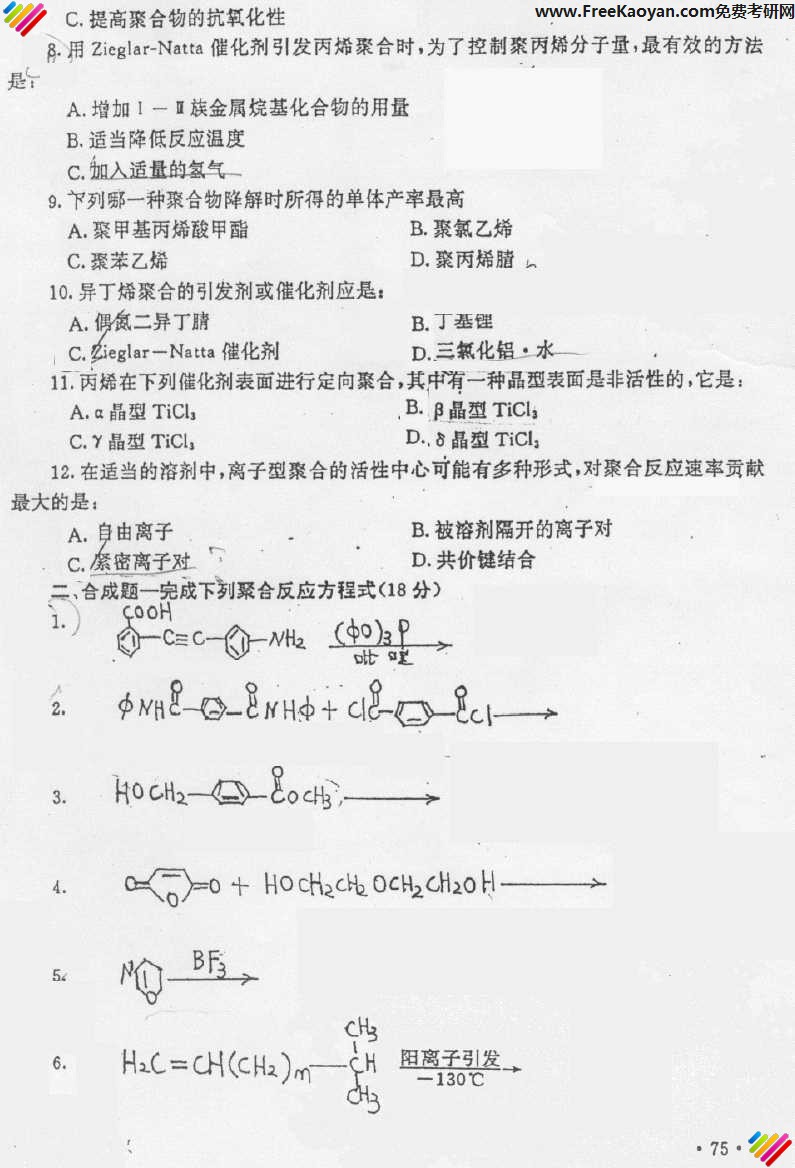 www.FreeKaoyan.com免费考研网
C.提高聚合物的抗氧化性
8.用 Ziegler-Natta 催化剂引发丙烯聚合时,为了控制聚丙烯分子量,最有效的方法
是:
A.增加Ⅰ—Ⅱ族金属烷基化合物的用量
B.适当降低反应温度
C.加入适量的氢气
9.下列哪一种聚合物降解时所得的单体产率最高
A.聚甲基丙烯酸甲酯 B.聚氯乙烯
C.聚苯乙烯 D.聚丙烯腈
10.异丁烯聚合的引发剂或催化剂应是:
A.偶氮二异丁腈 B.丁基锂
C.Zieglar—Natta 催化剂 D.三氯化铝·水
11.丙烯在下列催化剂表面进行定向聚合,其中有一种晶型表面是非活性的,它是:
A.α晶型 TiCl₃ B.β晶型 TiCl₃
C.γ晶型 TiCl₃ D.δ晶型 TiCl₃
12.在适当的溶剂中,离子型聚合的活性中心可能有多种形式,对聚合反应速率贡献
最大的是:
A.自由离子 B.被溶剂隔开的离子对
C.紧密离子对 D.共价键结合
二、合成题—完成下列聚合反应方程式(18分)
1. COOH C≡C NH₂ (ΦO)₃P
吡啶
2. ΦNHC O CNHΦ O + ClC O CCl O
3. HOCH₂ COCH₃ O
4. O O O + HOCH₂CH₂OCH₂CH₂OH
5. N O BF₃
6. H₂C=CH(CH₂)m CH CH₃ CH₃ 阳离子引发
−130℃
·75·